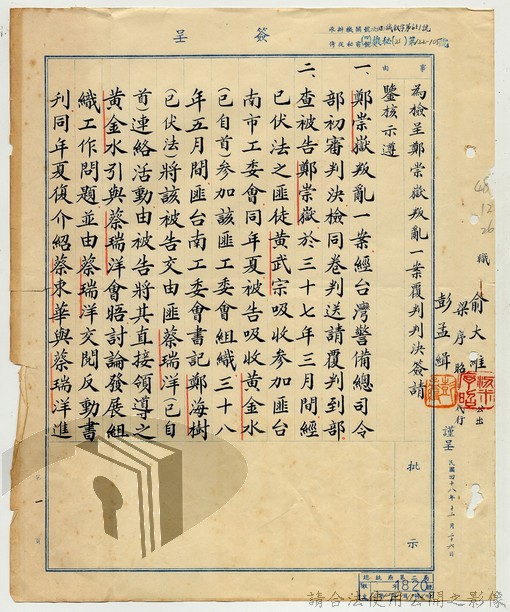 簽呈
事由
為檢呈鄭崇嶽叛亂一案覆判判決簽請
鑒核示遵
職
俞大維
公出
梁序昭
代行
彭孟緝
謹呈
民國四十八年十二月二十六日
48
12
26
一、鄭崇嶽叛亂一案經台灣警備總司令
部初審判決檢同卷判送請覆判到部
二、查被告鄭崇嶽於三十七年三月間經
已伏法之匪徒黃武宗吸收參加匪台
南市工委會同年夏被告吸收黃金水
(已自首)參加該匪工委會組織三十八
年五月間匪台南工委會書記鄭海樹
(已伏法)將該被告交由匪蔡瑞洋(已自
首)連絡活動由被告將其直接領導之
黃金水引與蔡瑞洋會晤討論發展組
織工作問題並由蔡瑞洋交閱反動書
刊同年夏復介紹蔡東華與蔡瑞洋進
批示
1820
請合法使用公開之影像